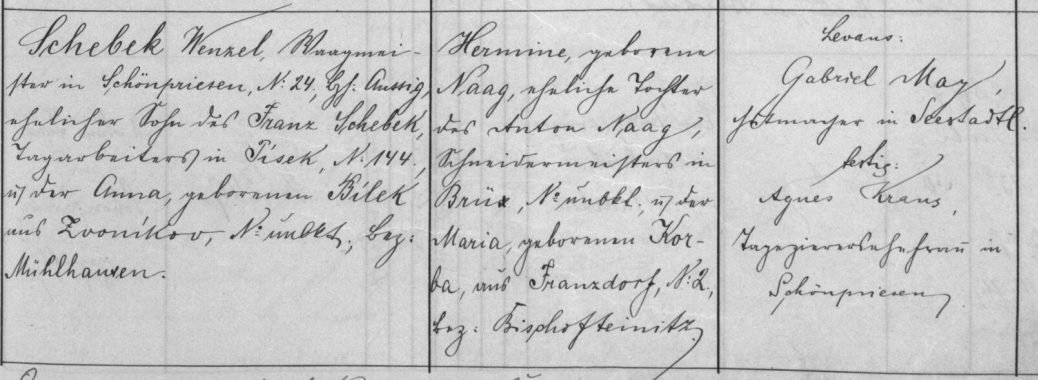 Schebek Wenzel, Waagmei-
ster in Schönpriesen, N: 24, Bzh: Aussig,
ehelicher Sohn des Franz Schebek,
Tagarbeiters in Písek, N: 144,
u der Anna, geborenen Bílek
aus Zvoníkov, No: unbkt., Bez:
Mühlhausen.
Hermine, geborene
Naag, eheliche Tochter
des Anton Naag,
Schneidermeisters in
Brüx, No: unbkt., u der
Maria, geborenen Kor-
ba, aus Franzdorf, N: 2.,
Bez: Bischofteinitz
Levans:
Gabriel May,
Hutmacher in Seestadtl.
testig:
Agnes Kraus,
Tapezierersehefrau in
Schönpriesen